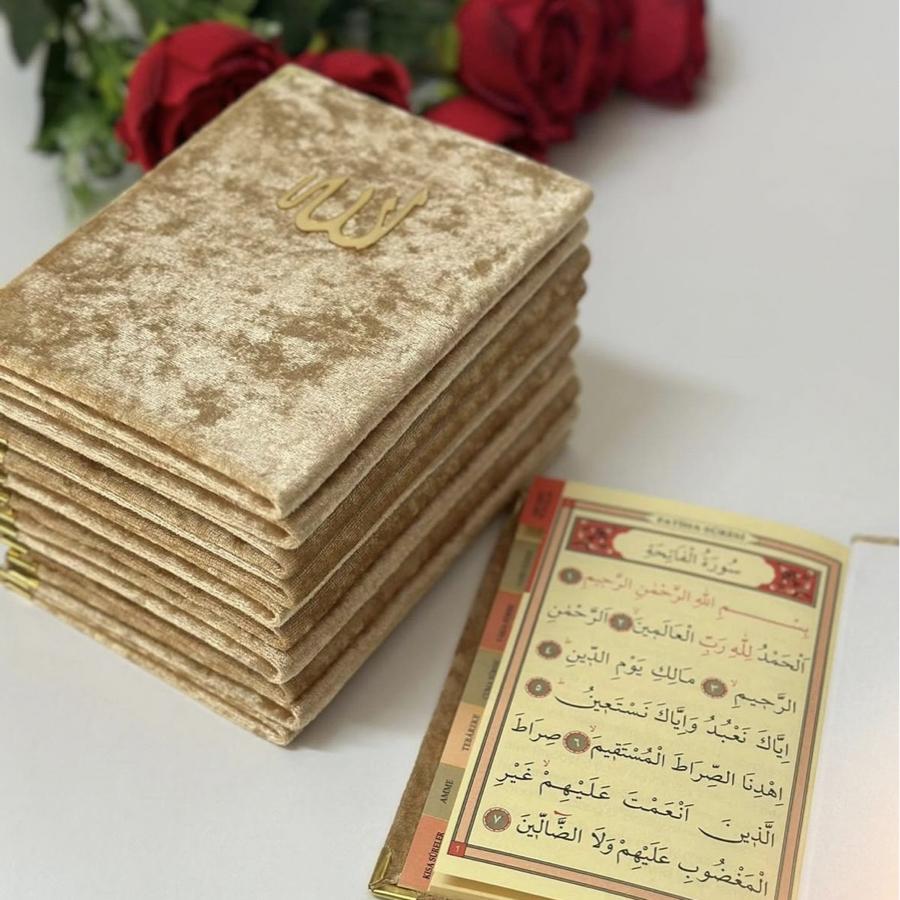 الله
FATİHA SÛRESİ
سُورَةُ الْفَاتِحَةِ
بِسْــمِ اللهِ الرَّحْمٰنِ الرَّحِيمِ ١
اَلْحَمْدُ لِلّٰهِ رَبِّ الْعَالَمِينَ ٢ اَلرَّحْمٰنِ
الرَّحِيمِ ٣ مَالِكِ يَوْمِ الدِّينِ ٤
اِيَّاكَ نَعْبُدُ وَاِيَّاكَ نَسْتَعِينُ ٥
اِهْدِنَا الصِّرَاطَ الْمُسْتَقِيمَ ٦ صِرَاطَ
الَّذِينَ اَنْعَمْتَ عَلَيْهِمْ غَيْرِ
الْمَغْضُوبِ عَلَيْهِمْ وَلَا الضَّٓالِّينَ ٧
TEBAREKE
AMME
KISA SÛRELER